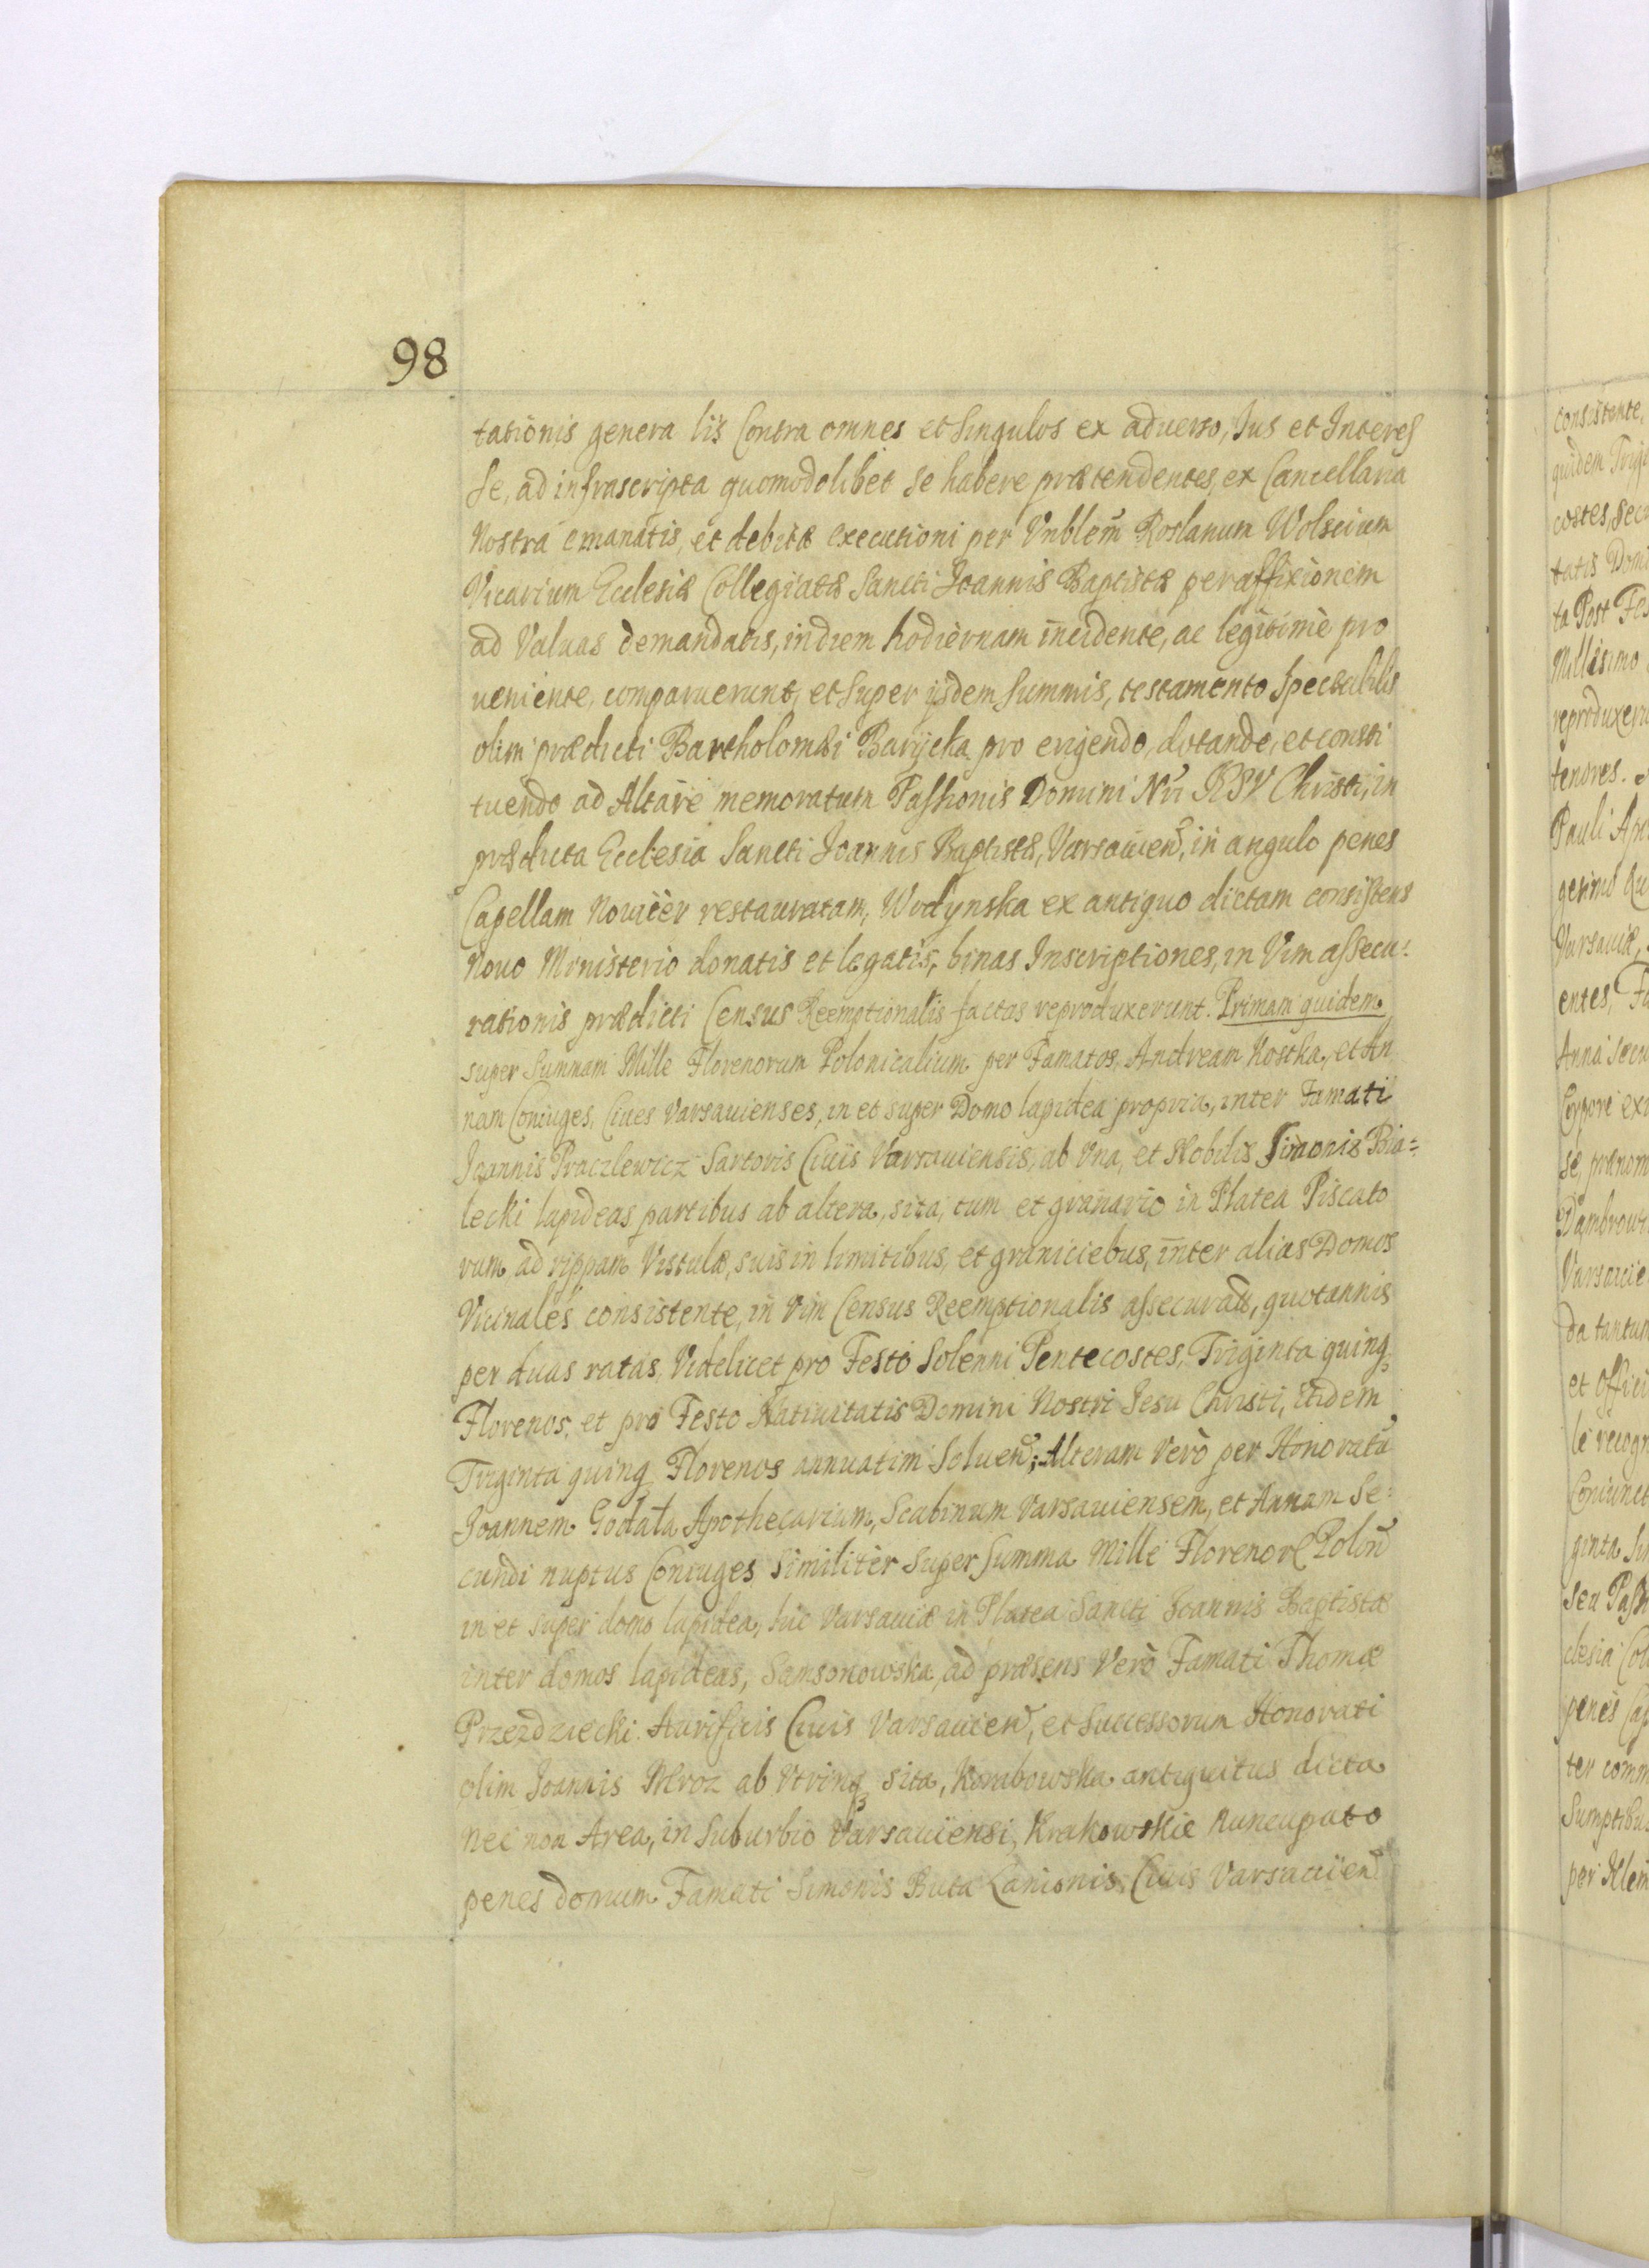 98
tationis genera lis Contra omnes et Singulos ex aduerso, Ius et Interes
se, ad infrascripta quomodolibet se habere prætendentes, ex Cancellaria
Nostra emanatis, et debitæ executioni per Vnblem̃ Roslanum Wolscium
Vicarium Ecclesiæ Collegiatæ Sancti Ioannis Baptistæ per affixionem
ad Valuas demandatis, in diem hodiernam incidente, ac legitimè pro
ueniente, comparuerunt, et super ijsdem summis, testamento Spectabilis
olim prædicti Bartholomæi Barijcka pro erigendo, dotando, et consti
tuendo ad Altare memoratum Passionis Domini Nri Christi, in
prædicta Ecclesia Sancti Ioannis Baptistæ, Varsauien̄, in angulo penes
Capellam Nouiter restauratam, Wodynska ex antiquo dictam consistens
Nouo Ministerio donatis et legatis, binas Inscriptiones, in Vim assecu:
rationis prædicti Census Reemptionalis factas reproduxerunt. Primam quidem
super Summam Mille Florenorum Polonicalium per Famatos, Andream Kostka, et An
nam Coniuges, Ciues Varsauienses, in et super Domo lapidea propria, inter Famati
Ioannis Praczlewicz Sartoris Ciuis Varsauiensis, ab Vna, et Nobilis Simonis Bia:
lecki lapideas partibus ab altera, sita, tum et granario in Platea Piscato
rum, ad rippam Vistulæ, suis in limitibus, et graniciebus, inter alias Domos
Vicinales consistente, in Vim Census Reemptionalis assecuratã, quotannis
per duas ratas, Videlicet pro Festo Solenni Pentecostes, Triginta quinq
Florenos, et pro Festo Natiuitatis Domini Nostri Iesu Christi, itidem
Triginta quinq Florenos annuatim Soluen̄; Alteram Verò per Honoratũ
Ioannem Godata Apothecarium, Scabinum Varsauiensem, et Annam Se:
cundi nuptus Coniuges Similitèr super Summa Mille Florenor Polon̄
in et super domo lapidea, hic Varsauiæ in Platea Sancti Ioannis Baptistæ
inter domos lapideas, Samsonowska, ad præsens Verò Famati Thomæ
Przezdziecki Aurificis Ciuis Varsauien̄, et Successorum Honorati
olim Ioannis Mroz ab Vtrinq sita, Korabowska antiquitus dicta
Nec non Area, in Suburbio Varsauiensi, Krakowskie Nuncupato
penes domum Famati Simonis Buta Lanionis, Ciuis Varsauien̄